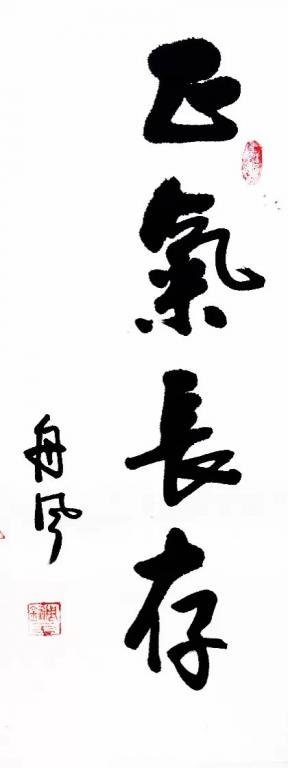 正氣長存
舟風